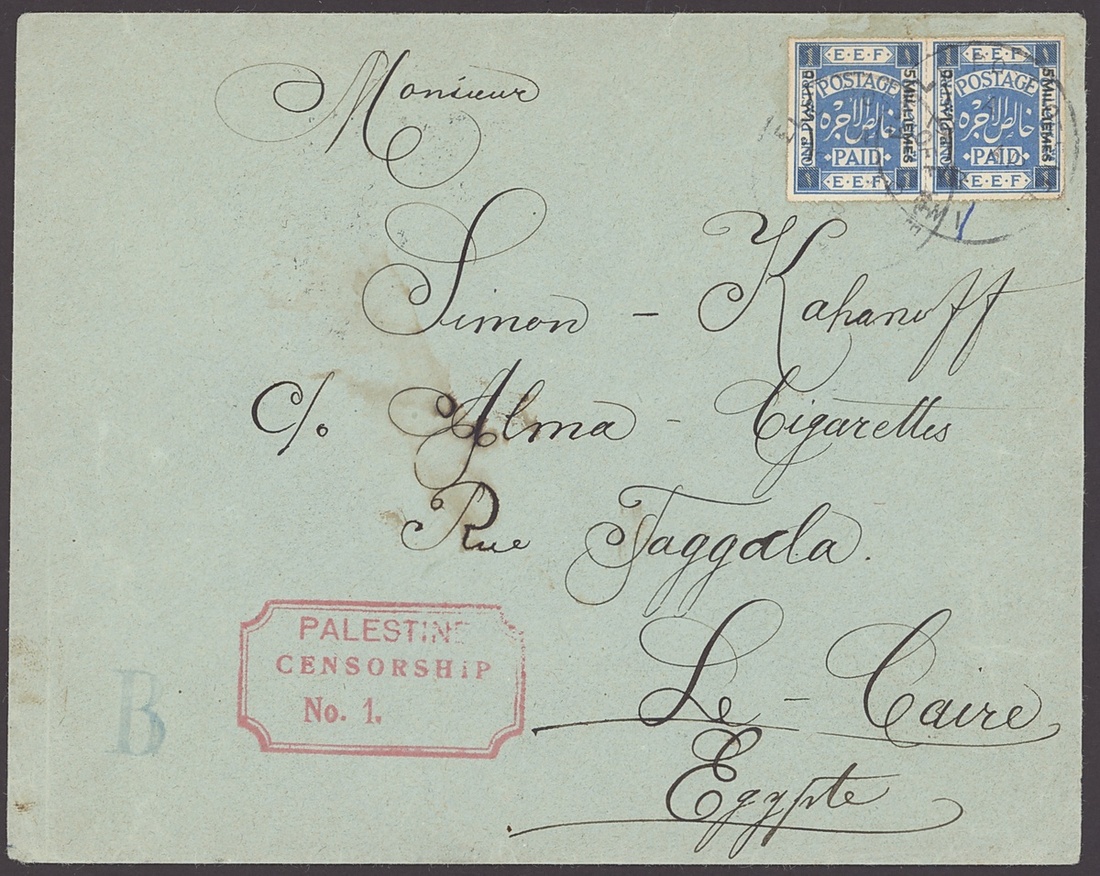 Monsieur
Simon - Kahanoff
c/o Alma - Cigarettes
Rue Taggala.
Le - Caire
Egypte
E·E·F
1 1
POSTAGE
خالص الأجرة
PAID
ONE PIASTRE
5 MILLIEMES
1 1
E·E·F
E·E·F
1 1
POSTAGE
خالص الأجرة
PAID
ONE PIASTRE
5 MILLIEMES
1 1
E·E·F
PALESTINE
CENSORSHIP
No. 1.
B